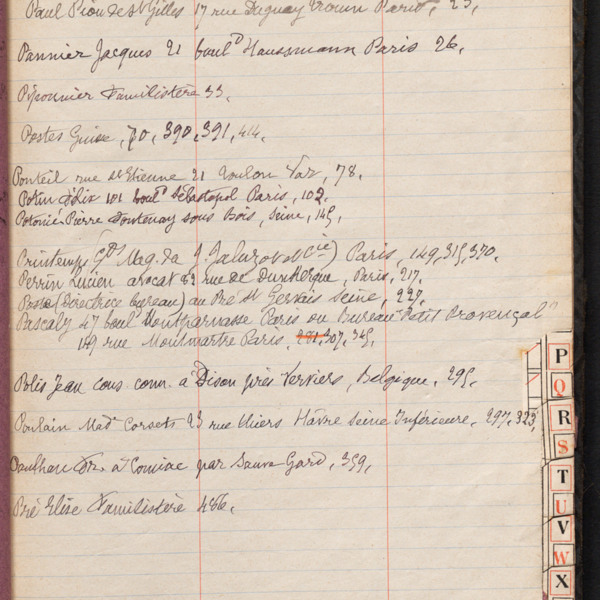 Paul Piou de St Gilles 17 rue Duguay Trouin Paris, 23,
Pannier Jacques 21 boulᵈ Haussmann Paris 26,
Piponnier Familistère 33,
Postes Guise, 70, 390, 391, 414,
Ponteil rue St Etienne 21 Toulon Var, 78,
Potin Félix 101 boulᵈ Sébastopol Paris, 102,
Potonié Pierre Fontenay sous Bois, Seine, 145,
Printemps (Gds Mag. du J. Jaluzot et Cie) Paris, 149, 315, 370,
Perrin Lucien avocat 82 rue de Dunkerque, Paris, 217,
Poste (Directrice bureau) au Pré St Gervais Seine, 227,
Pascaly 47 boul Montparnasse Paris ou Bureau "Petit Provençal"
149 rue Montmartre Paris, 307, 345,
Polis Jean cous. conn. à Dison près Verviers, Belgique, 295,
Poulain Madᵉ Corsets 23 rue Thiers Hâvre Seine Inférieure, 297, 323,
Paulhan à Comiac par Sauve Gard, 359,
Pré Elise Familistère 466,
P
Q
R
S
T
U
V
W
X